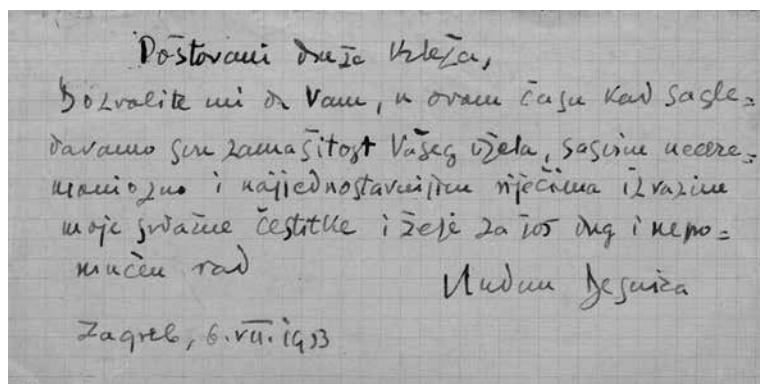 Poštovani druže Krleža,
Dozvolite mi da Vam, u ovom času kad sagle=
davamo svu zamašitost Vašeg djela, sasvim necere=
moniozno i najjednostavnijim riječima izrazim
moje srdačne čestitke i želje za još dug i nepo=
mućen rad
Vladan Desnica
Zagreb, 6. VII. 1953